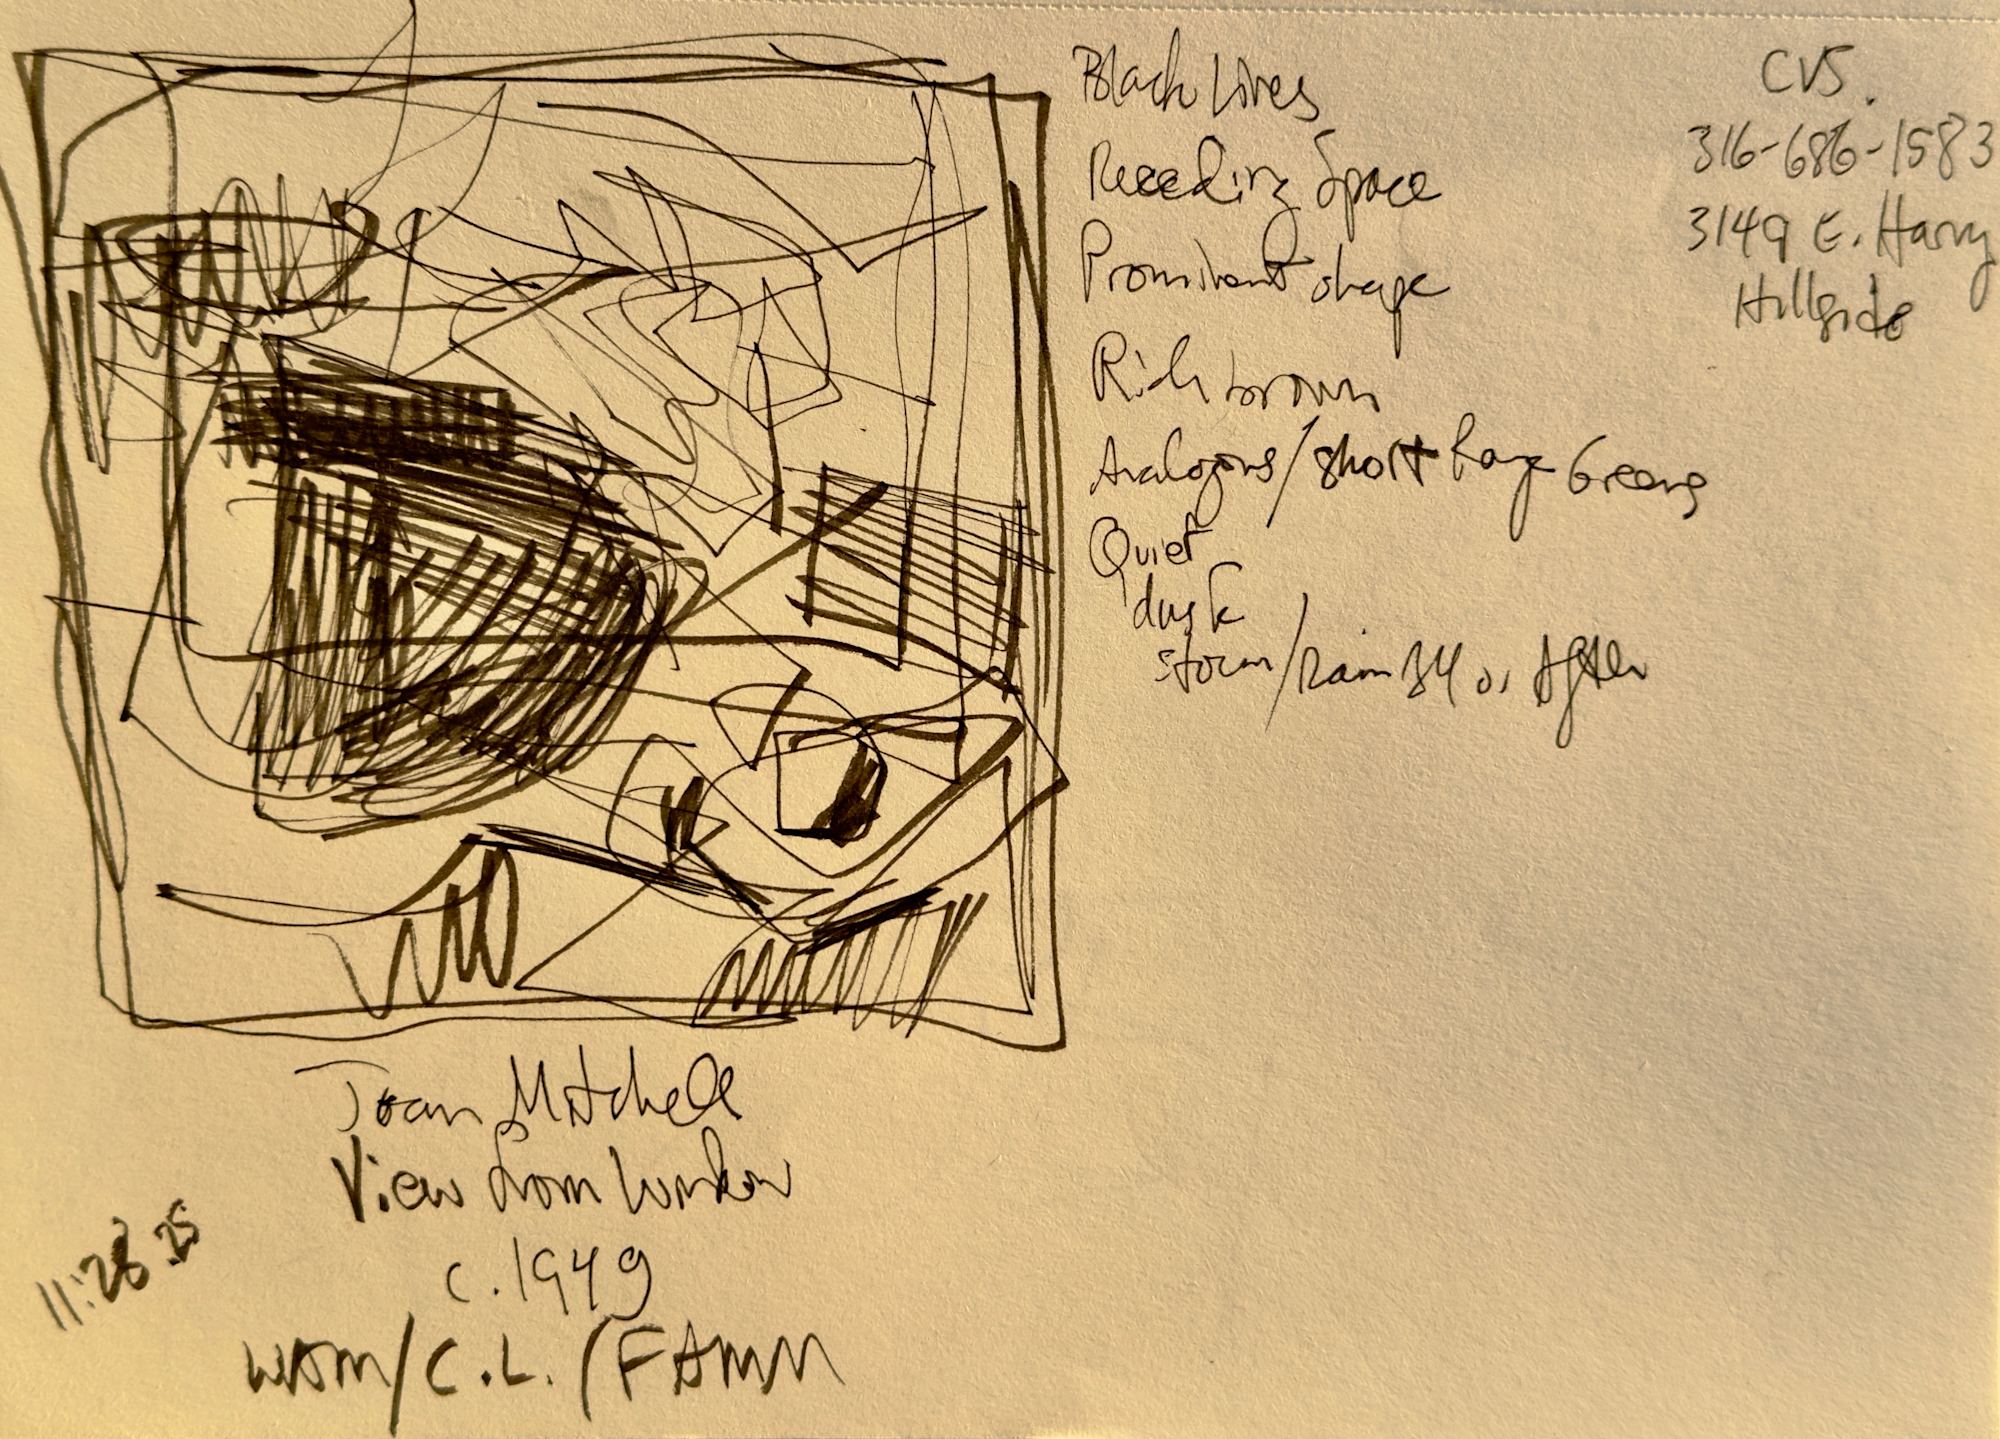 Black Lines
Receding Space
Prominent shape
Rich brown
Analogous/short Range Greens
Quiet
dusk
storm/rain B4 or After
CVS.
316-686-1583
3149 E. Harry
Hillside
Joan Mitchell
View from Window
c. 1949
11:28 25
WAM/C.L./FAMM